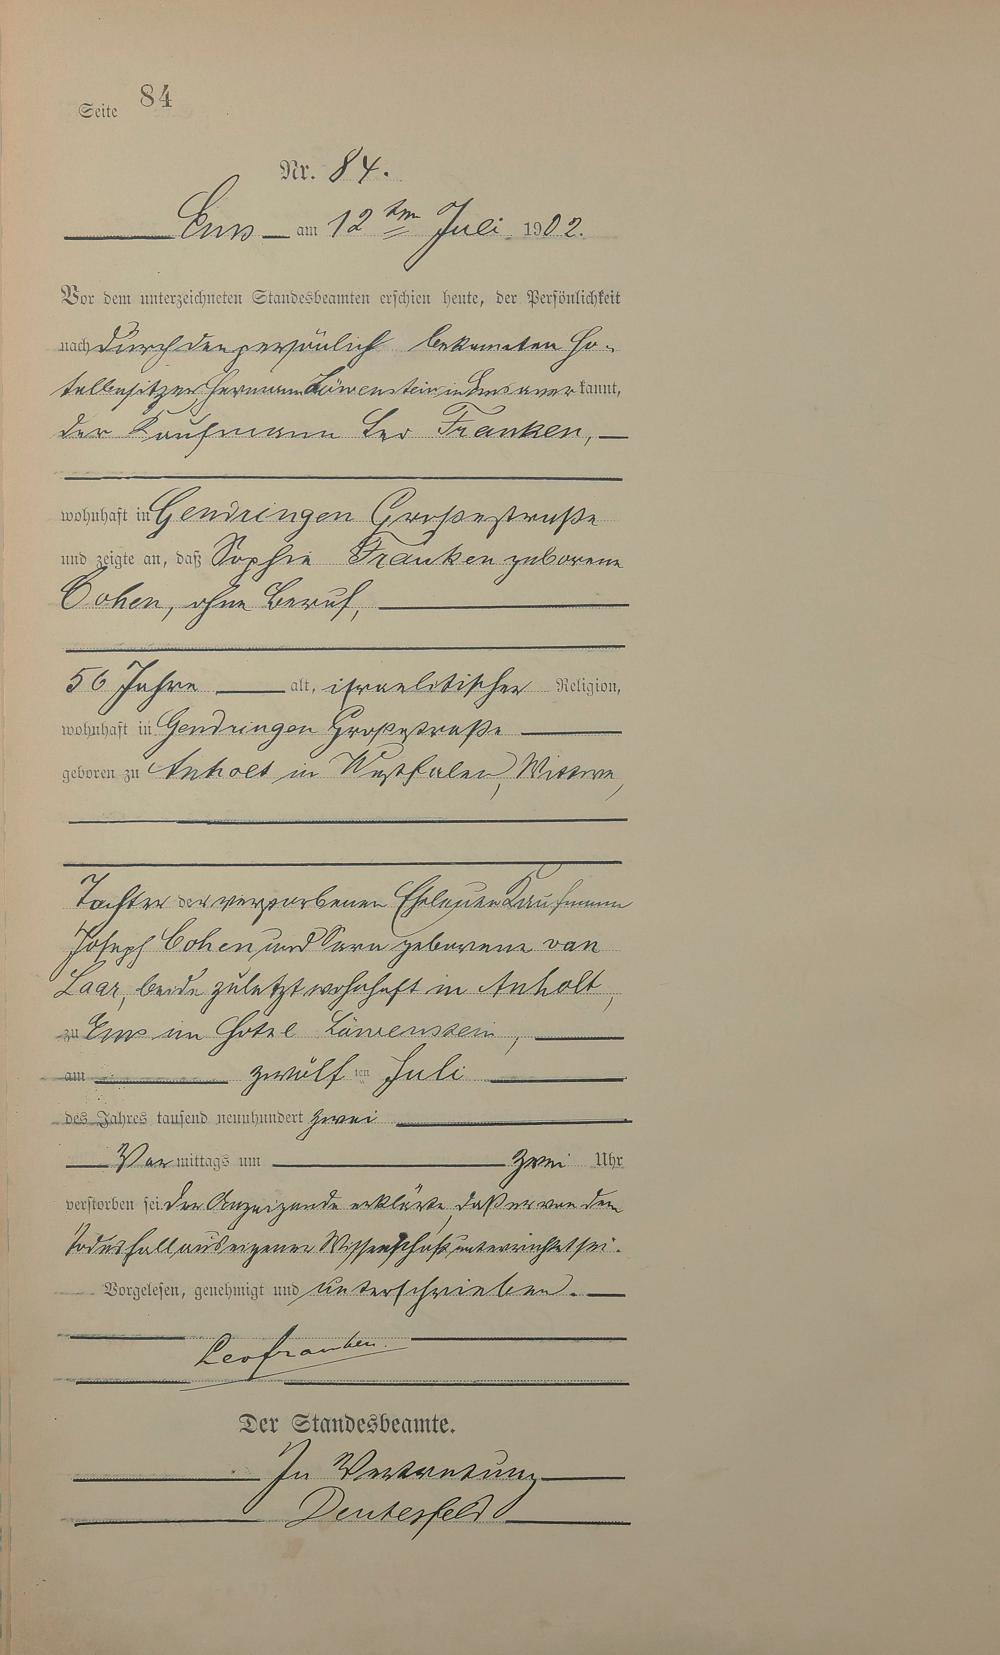 Seite 84
Nr. 84.
Ems am 12ten Juli 1902.
Vor dem unterzeichneten Standesbeamten erschien heute, der Persönlichkeit
nach durch den persönlich bekannten Ho-
telbesitzer Hermann Löwenstein in Ems anerkannt,
der Kaufmann Leo Franken,
wohnhaft in Gendringen Großestraße
und zeigte an, daß Sophie Franken geborene
Cohen, ohne Beruf,
56 Jahre alt, israelitischer Religion,
wohnhaft in Gendringen Großestraße
geboren zu Anholt in Westfalen, Wittwe,
Tochter der verstorbenen Eheleute Kaufmann
Joseph Cohen und Sara geborene van
Laar, beide zuletzt wohnhaft in Anholt,
zu Ems im Hotel Löwenstein,
am zwölften Juli
des Jahres tausend neunhundert zwei
Vormittags um zwei Uhr
verstorben sei. Der Anzeigende erklärte, daß er von dem
Todesfall aus eigener Wissenschaft unterrichtet sei.
Vorgelesen, genehmigt und unterschrieben.
Leo Franken.
Der Standesbeamte.
In Vertretung